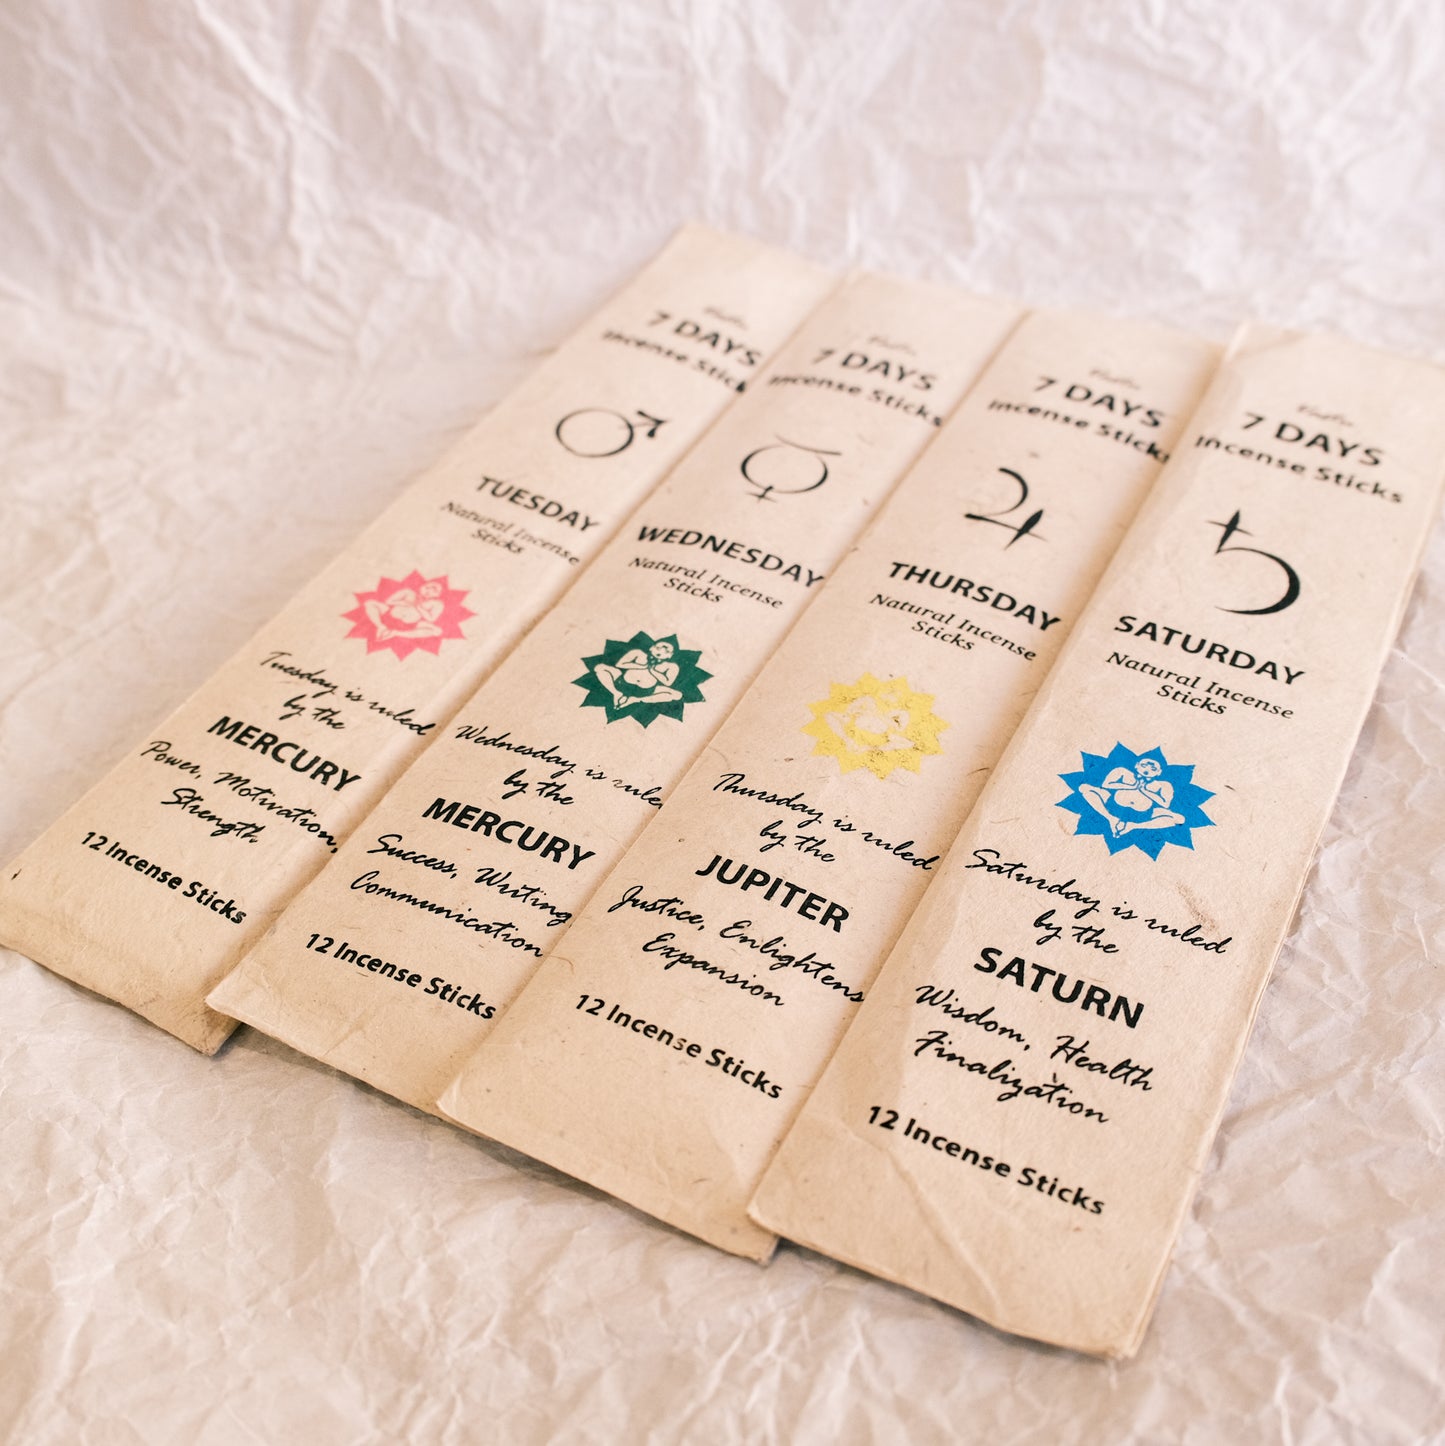 7 DAYS
Incense Sticks
TUESDAY
Natural Incense
Sticks
Tuesday is ruled
by the
MERCURY
Power, Motivation,
Strength
12 Incense Sticks
7 DAYS
Incense Sticks
WEDNESDAY
Natural Incense
Sticks
Wednesday is rule
by the
MERCURY
Success, Writing
Communication
12 Incense Sticks
7 DAYS
Incense Sticks
THURSDAY
Natural Incense
Sticks
Thursday is ruled
by the
JUPITER
Justice, Enlightens
Expansion
12 Incense Sticks
7 DAYS
Incense Sticks
SATURDAY
Natural Incense
Sticks
Saturday is ruled
by the
SATURN
Wisdom, Health
Finalization
12 Incense Sticks